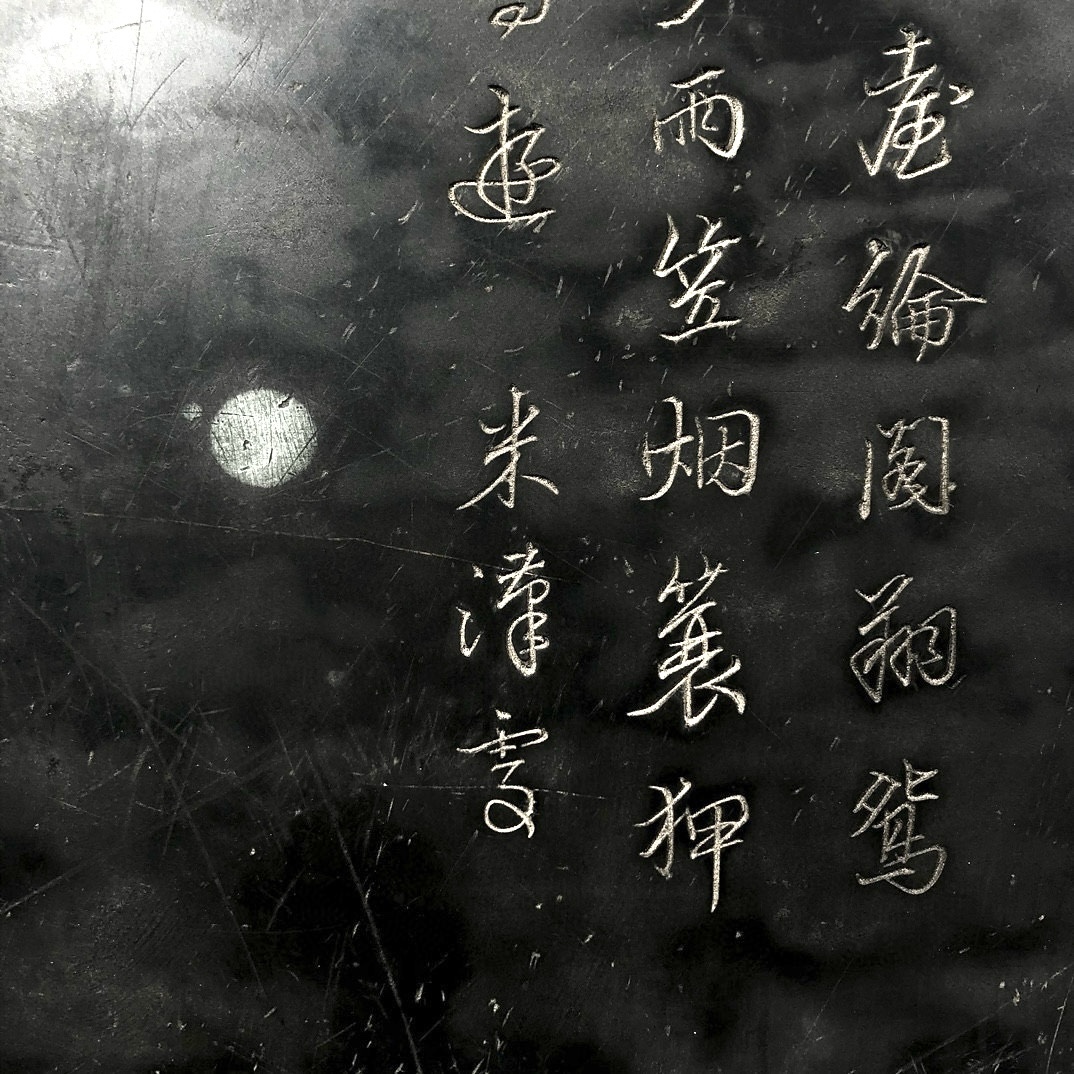 臺綸閣翔鴛
雨笠烟簑狎
遊 米漢雯